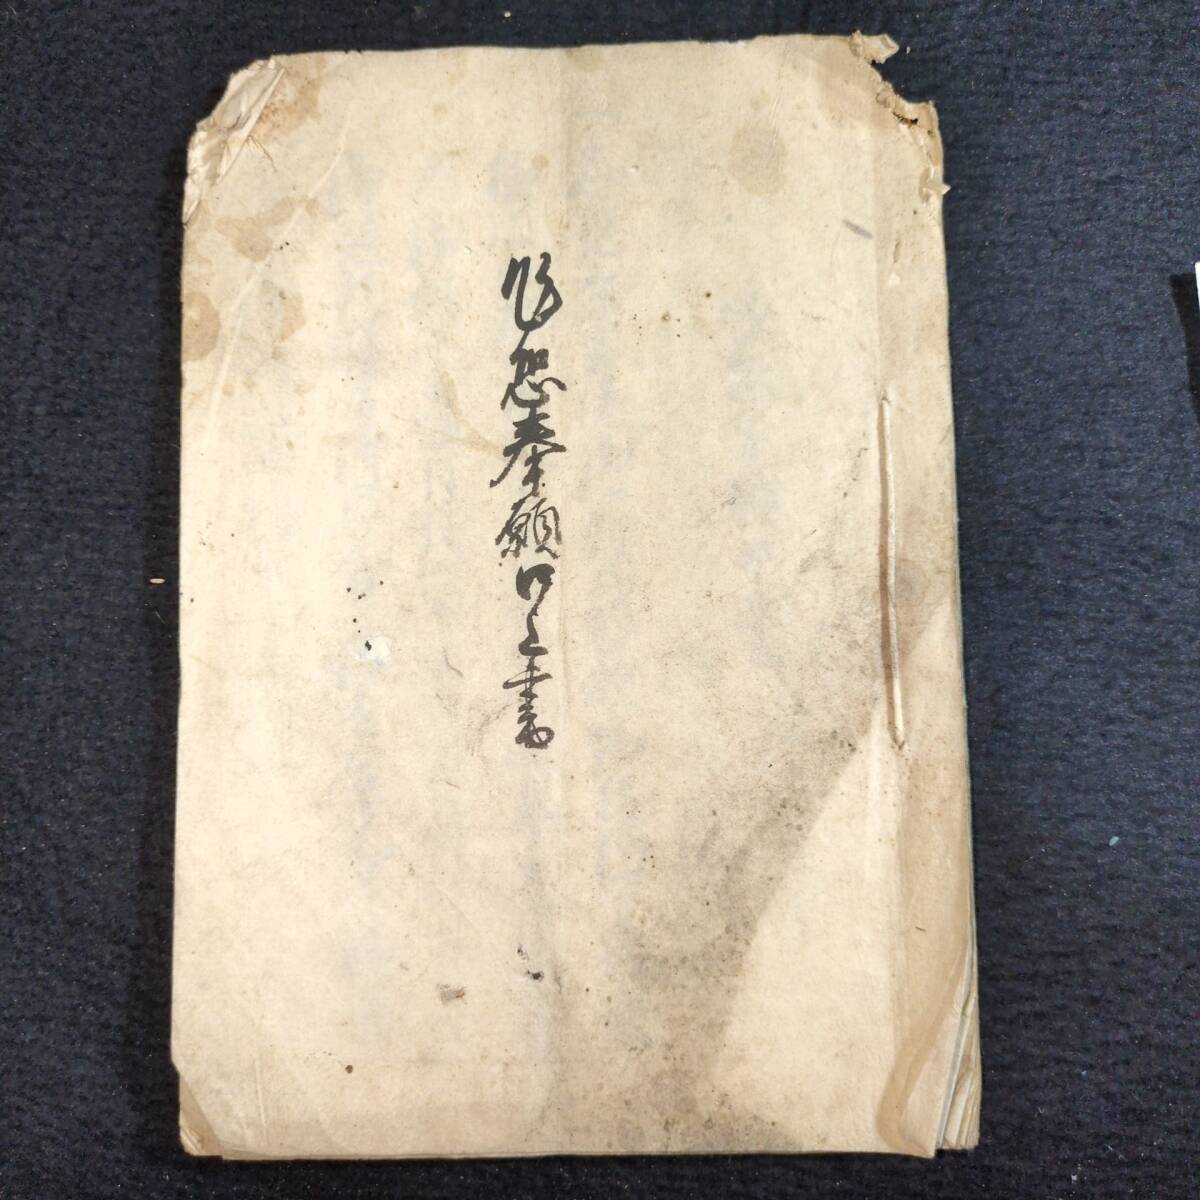 乍恐奉願口上書